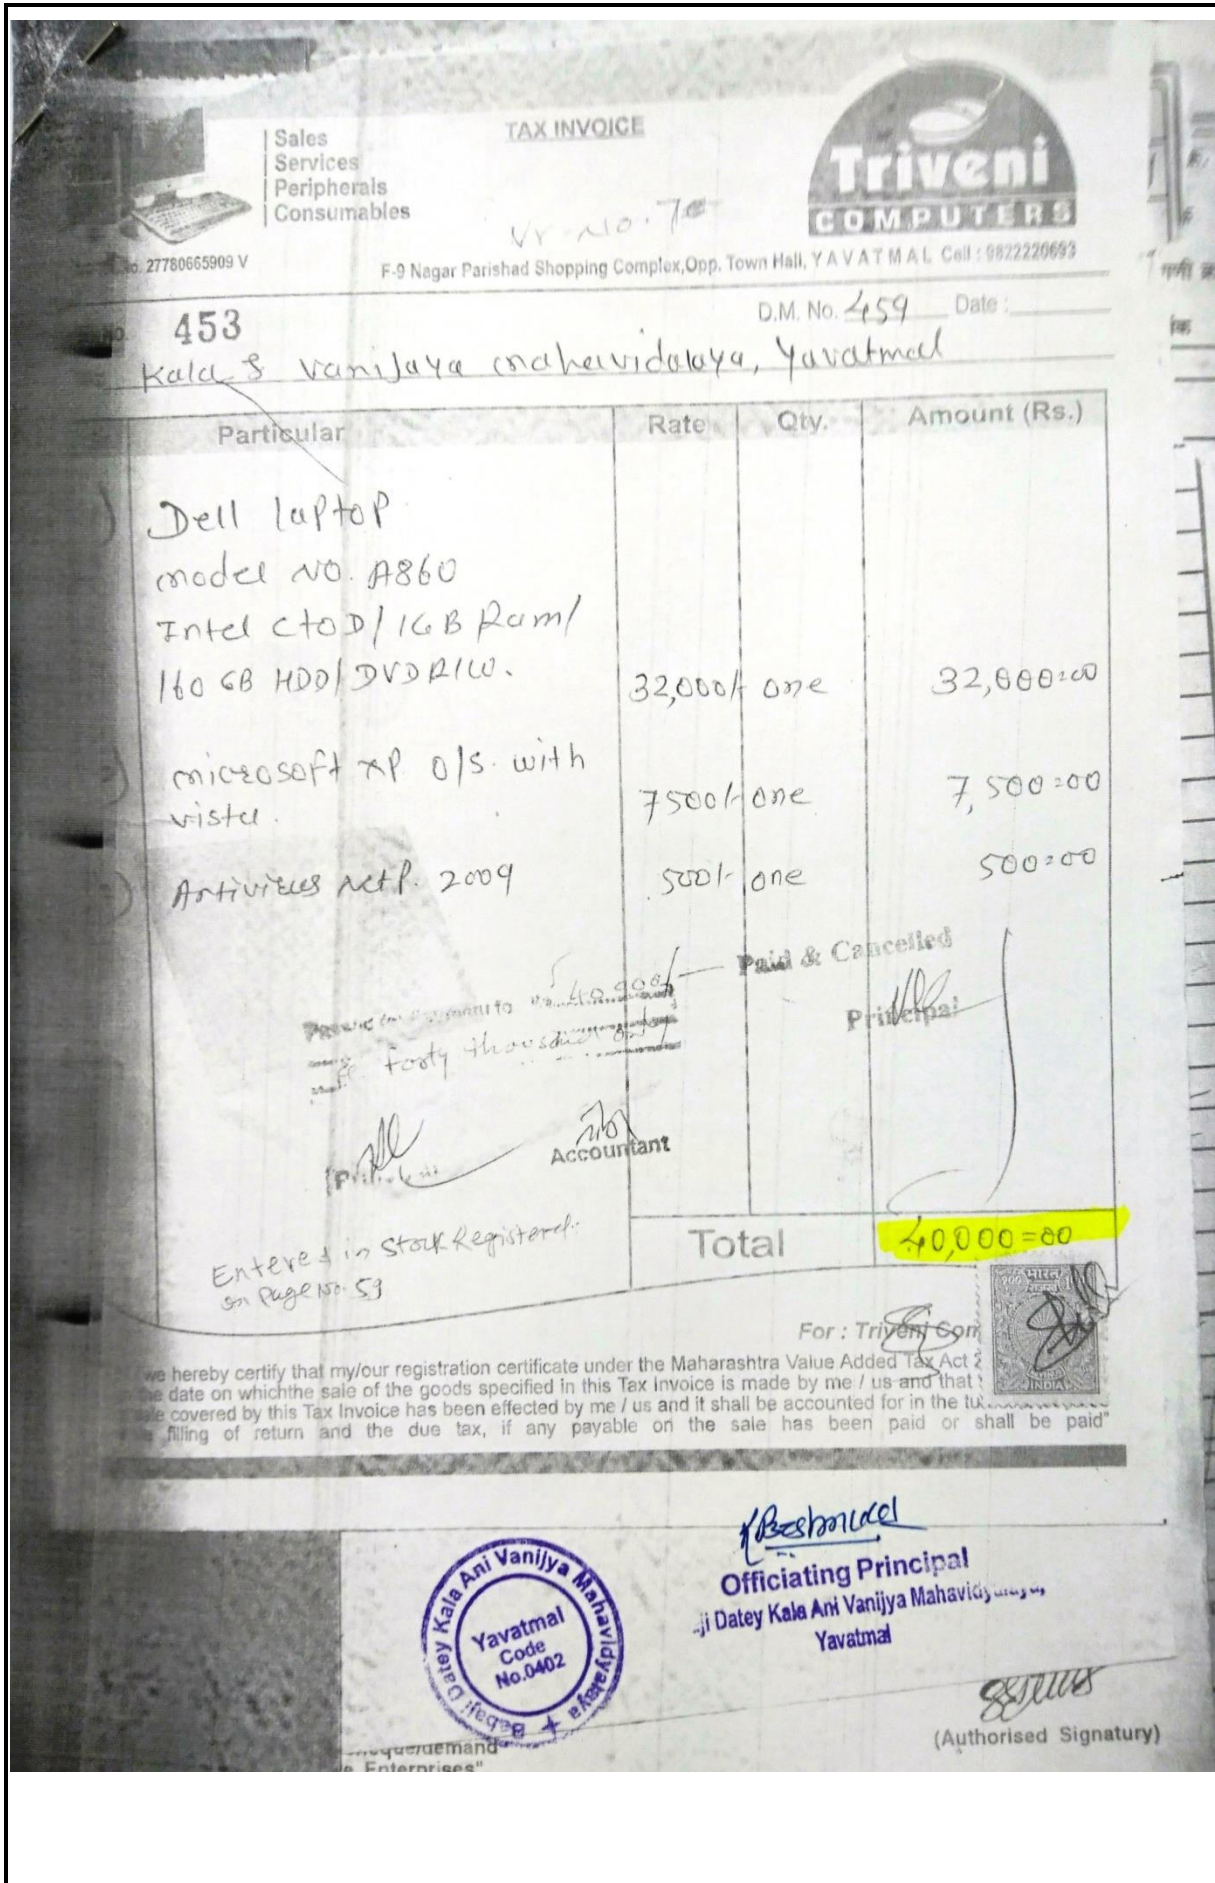 TAX INVOICE
Sales
Services
Peripherals
Consumables
Triveni
COMPUTERS
Vr. No. 7
No. 27780665909 V
F-9 Nagar Parishad Shopping Complex,Opp. Town Hall, YAVATMAL Cell : 9822220693
D.M. No. 459 Date :
No. 453
Kala & Vanijaya mahavidalaya, Yavatmal
Particular Rate Qty. Amount (Rs.)
Dell laptop
model NO. A860
Intel CtoD/1GB Ram/
160 GB HDD/ DVDR/W. 32,000/- one 32,000=00
microsoft XP O/S. with
vista. 7500/- one 7,500=00
Antivirus NetP. 2009 500/- one 500=00
Paid & Cancelled
Principal
40,000/-
forty thousand only
Accountant
Entered in Stock Registered.
on page No. 59
Total 40,000=00
For : Triveni Com
we hereby certify that my/our registration certificate under the Maharashtra Value Added Tax Act 2
the date on whichthe sale of the goods specified in this Tax Invoice is made by me / us and that
covered by this Tax Invoice has been effected by me / us and it shall be accounted for in the tu
filling of return and the due tax, if any payable on the sale has been paid or shall be paid"
भारत
INDIA
Officiating Principal
ji Datey Kala Ani Vanijya Mahavidyalaya,
Yavatmal
Babaji Datey Kala Ani Vanijya Mahavidyalaya
Yavatmal
Code
No.0402
(Authorised Signatury)
demand
Enterprises"